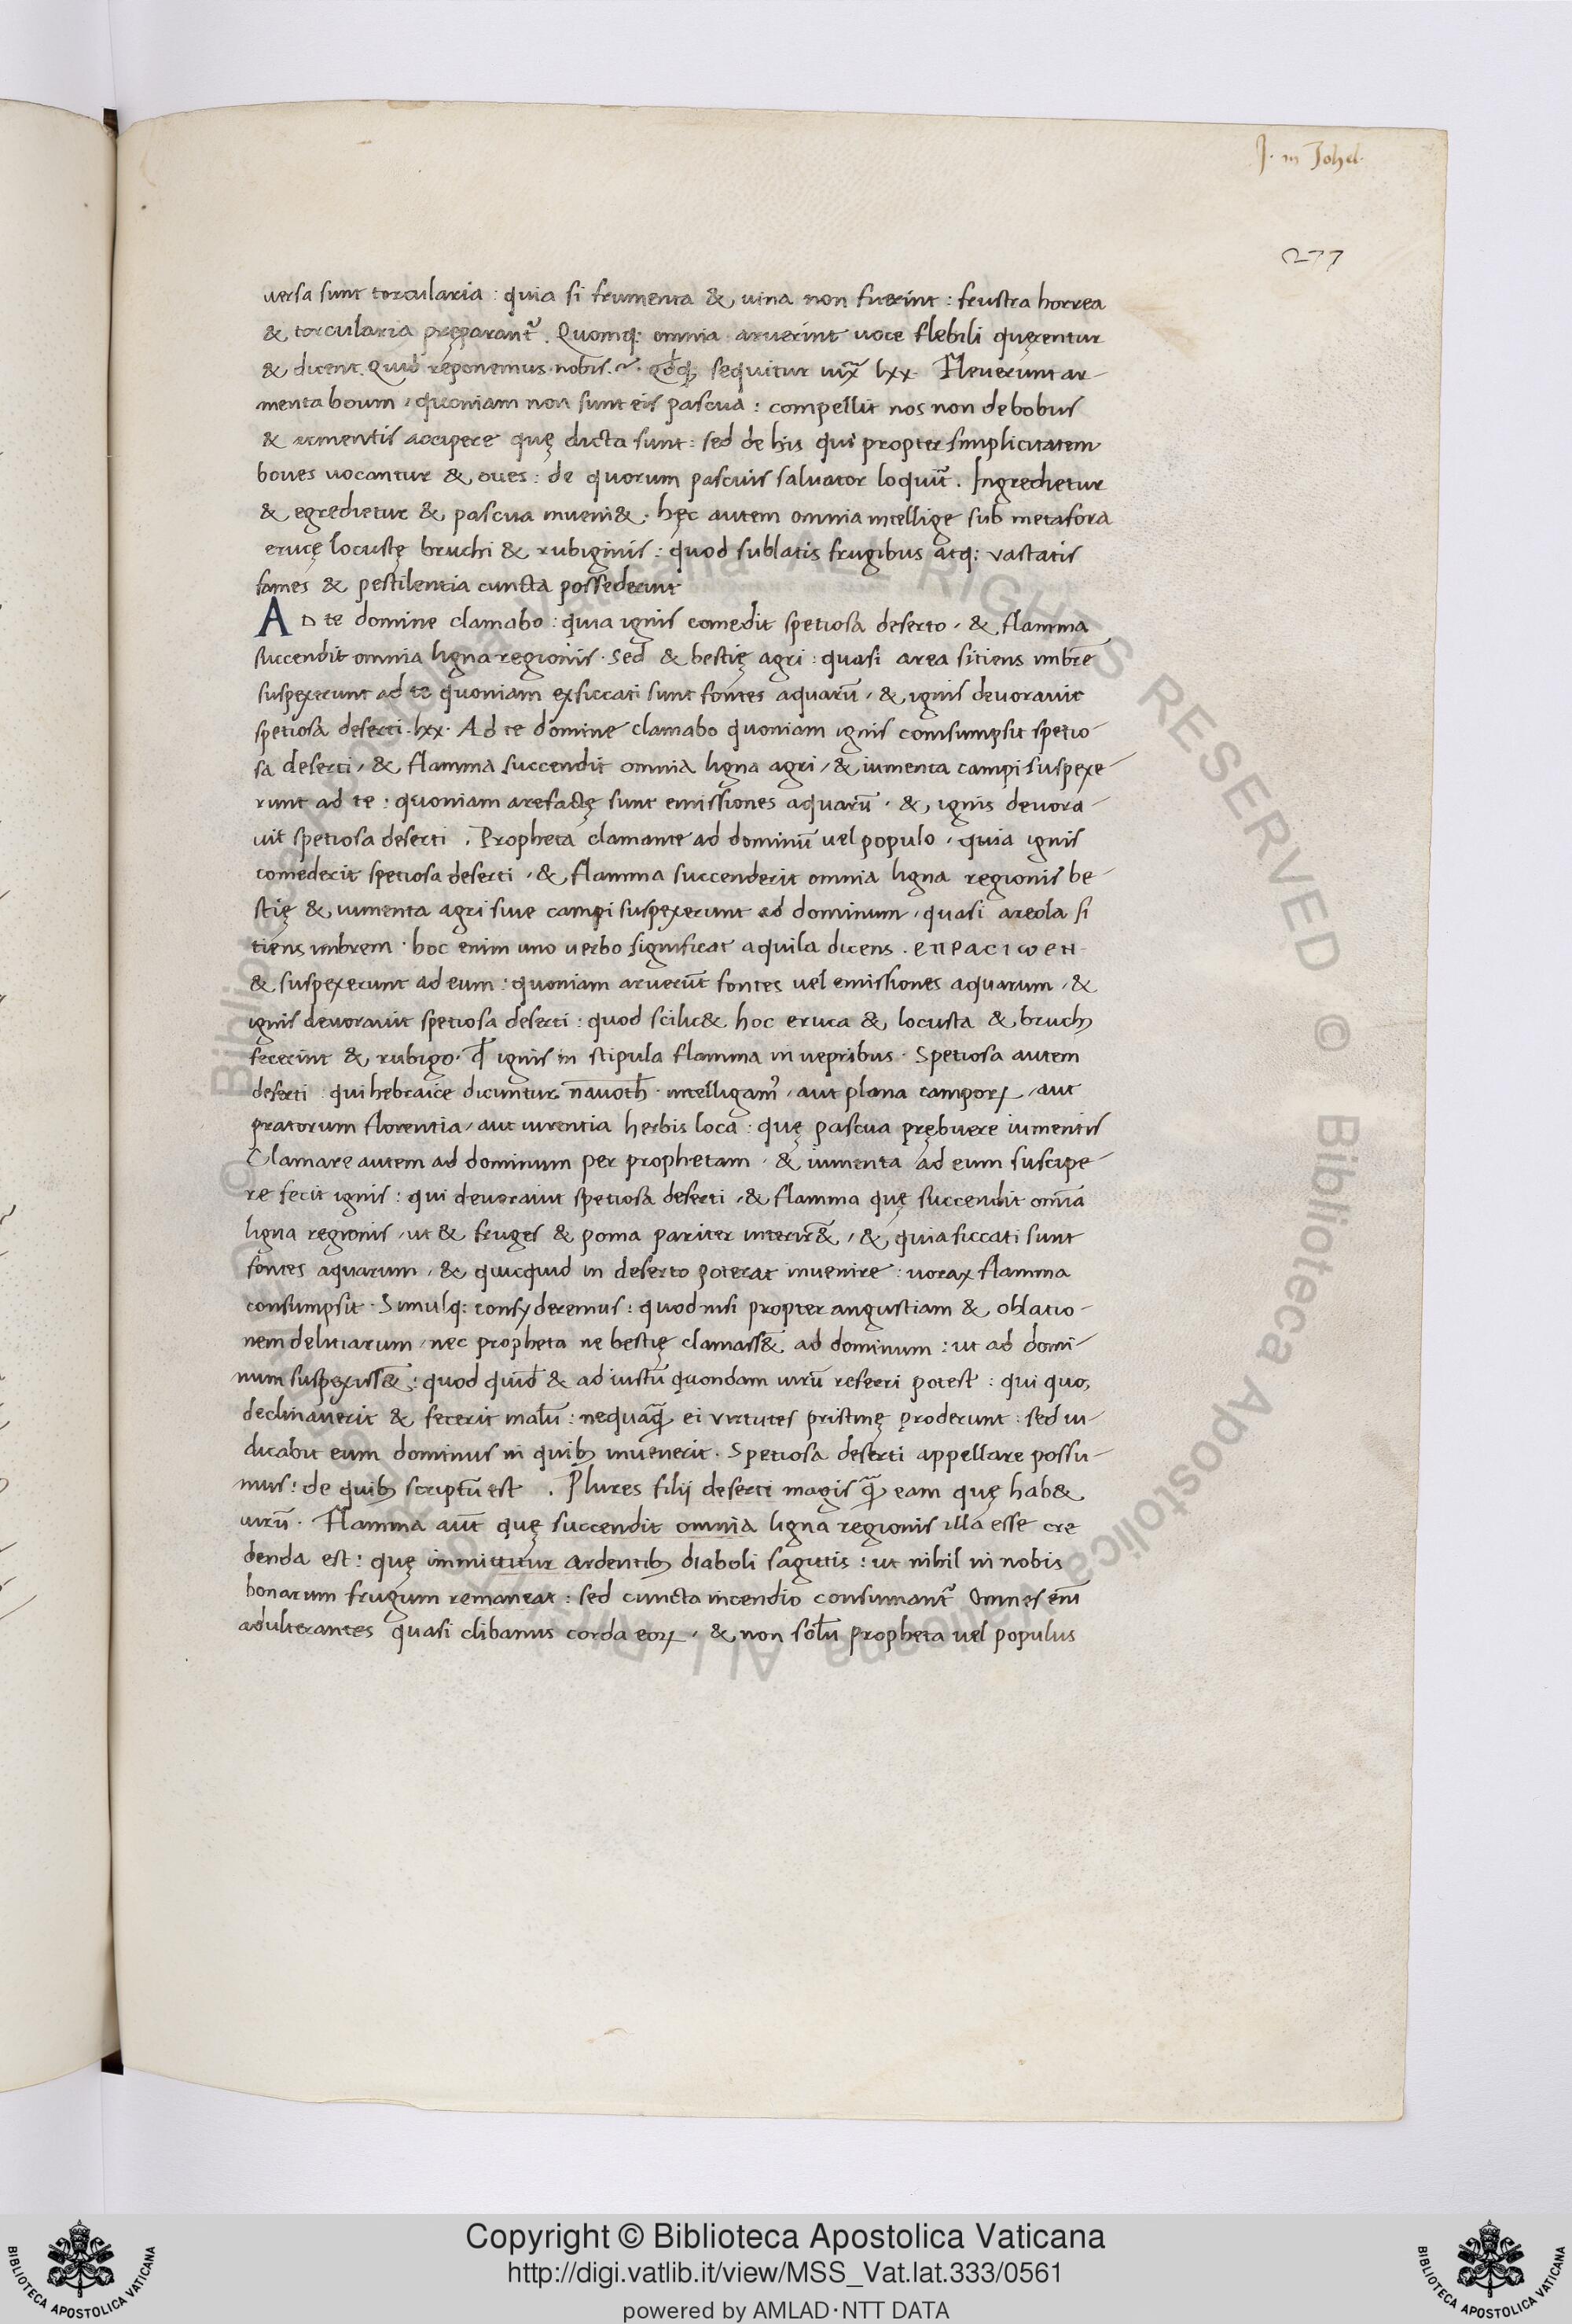 J. in Johel.
277
versa sunt torcularia : quia si frumenta & uina non fuerint : frustra horrea
& torcularia pręparant᷑. Quomq; omnia aruerint uoce flebili quęrentur
& dicent. Quid reponemus nobis. sequitur iux̄ lxx. Fleuerunt ar-
menta boum, quoniam non sunt eis pascua : compellit nos non de bobus
& armentis accipere quę dicta sunt : sed de his qui propter simplicitatem
boues uocantur & oues : de quorum pascuis saluator loquit᷑. Ingredietur
& egredietur & pascua inueni&. hęc autem omnia intellige sub metafora
erucę locustę bruchi & rubiginis : quod sublatis frugibus atq; vastatis
fames & pestilentia cuncta possederunt
AD te domine clamabo : quia ignis comedit spetiosa deserto, & flamma
succendit omnia ligna regionis. Sed & bestię agri : quasi area sitiens imbrē
suspexerunt ad te quoniam exsiccati sunt fontes aquarū, & ignis deuorauit
spetiosa deserti. lxx. Ad te domine clamabo quoniam ignis comsumpsit spetio-
sa deserti, & flamma succendit omnia ligna agri, & iumenta campi suspexe-
runt ad te : quoniam arefactę sunt emissiones aquarū. &, ignis deuora-
uit spetiosa deserti. Propheta clamante ad dominū uel populo, quia ignis
comederit spetiosa deserti, & flamma succenderit omnia ligna regionis be-
stię & iumenta agri siue campi suspexerunt ad dominum, quasi areola si
tiens imbrem. hoc enim uno uerbo significat aquila dicens. ⲉⲡⲣⲁⲥⲓⲱⲉⲏ
& suspexerunt ad eum : quoniam aruerūt fontes uel emissiones aquarum, &
ignis deuorauit spetiosa deserti : quod scilic& hoc eruca & locusta & bruch9
fecerint & rubigo. qđ ignis in stipula flamma in uepribus. Spetiosa autem
deserti qui hebraice dicuntur nauoth. intelligam9, aut plana campoꝝ, aut
pratorum florentia, aut uirentia herbis loca : quę pascua prębuere iumentis
Clamare autem ad dominum per prophetam. & iumenta ad eum suscipe-
re fecit ignis : qui deuorauit spetiosa deserti, & flamma quę succendit omīa
ligna regionis, ut & fruges & poma pariter interir&, & quia siccati sunt
fontes aquarum, & quicquid in deserto poterat inuenire : uorax flamma
consumpsit. Simulq; consyderemus : quod nisi propter angustiam & oblatio-
nem delitiarum, nec propheta ne bestię clamass& ad dominum : ut ad domi-
num suspexiss& : quod quid & ad iustū quondam uirū referri potest : qui quo,
declinauerit & fecerit malū : nequaꝙ̄ ei virtutes pristinę proderunt : sed iu-
dicabit eum dominus in quib; inuenerit. Spetiosa deserti appellare possu-
mus : de quib; scriptū est. Plures filij deserte magis ꝙ̄ eam quę hab&
uirū. Flamma aūt quę succendit omnia ligna regionis illa esse cre
denda est : quę immittitur ardentib; diaboli sagittis : ut nihil in nobis
bonarum frugum remaneat : sed cuncta incendio consumant᷑ Omnes eīn
adulterantes quasi clibanus corda eoꝝ, & non solū propheta uel populus
© Biblioteca Apostolica Vaticana ALL RIGHTS RESERVED
Copyright © Biblioteca Apostolica Vaticana
http://digi.vatlib.it/view/MSS_Vat.lat.333/0561
powered by AMLAD·NTT DATA
BIBLIOTECA APOSTOLICA VATICANA
BIBLIOTECA APOSTOLICA VATICANA